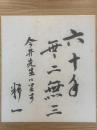 六十年
無二無三
今井先生に呈す
輝一